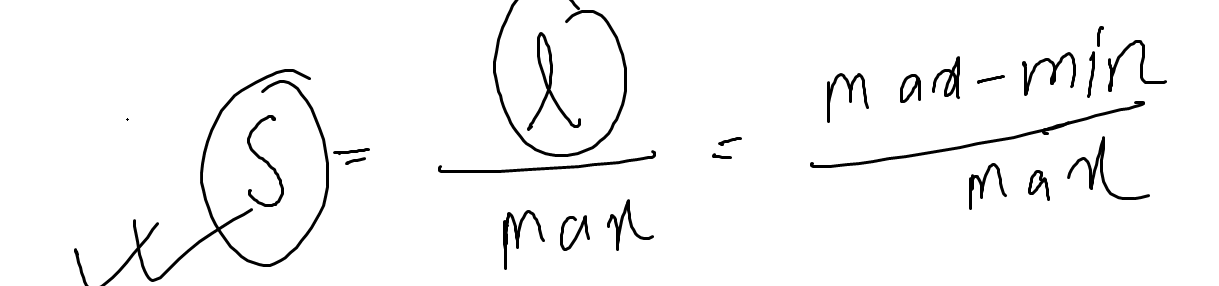 S = l / max = max - min / max